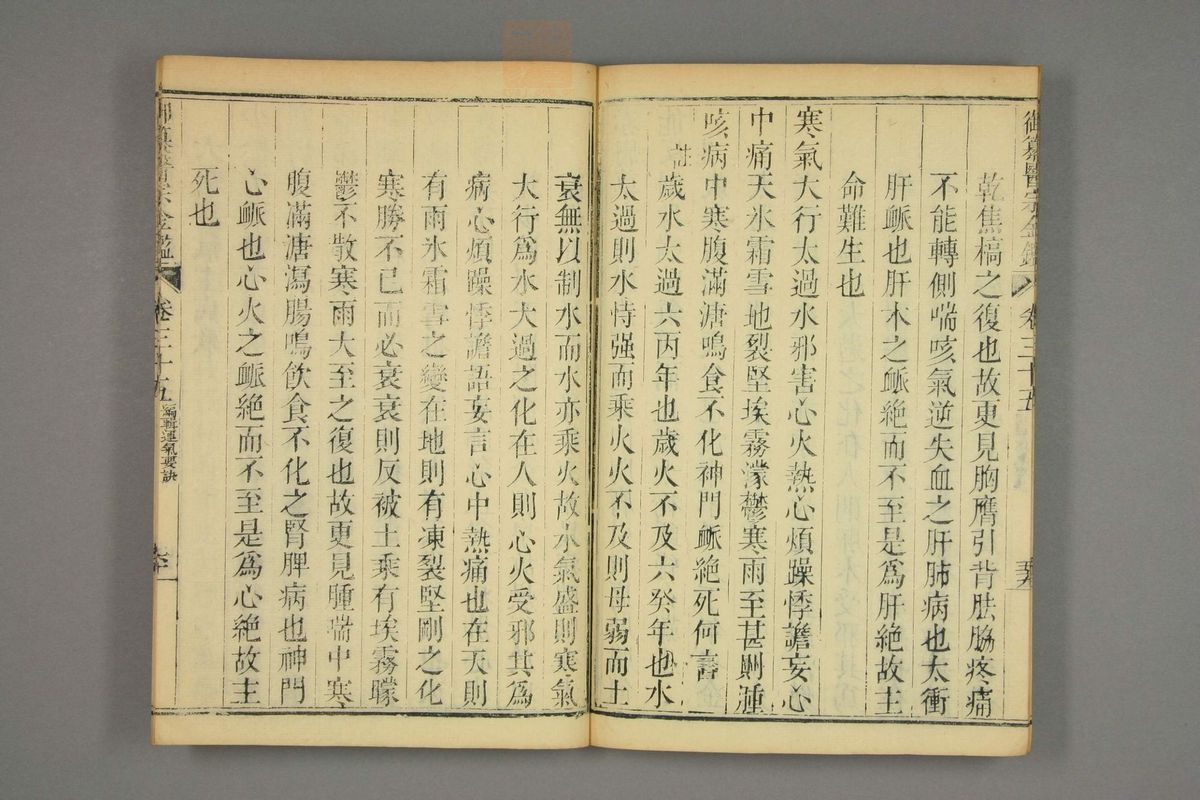 御纂醫宗金鑑 卷三十五
乾焦槁之復也故更見胸膺引背胠脇疼痛
不能轉側喘咳氣逆失血之肝肺病也太衝
肝脈也肝木之脈絶而不至是爲肝絶故主
命難生也
寒氣大行太過水邪害心火熱心煩躁悸譫妄心
中痛天氷霜雪地裂堅埃霧濛鬱寒雨至甚則腫
咳病中寒腹滿溏鳴食不化神門脈絶死何言
註
歲水太過六丙年也歲火不及六癸年也水
太過則水恃强而乘火火不及則母弱而土
衰無以制水而水亦乘火故水氣盛則寒氣
大行爲水太過之化在人則心火受邪其爲
病心煩躁悸譫語妄言心中熱痛也在天則
有雨氷霜雪之變在地則有凍裂堅剛之化
寒勝不已而必衰衰則反被土乘有埃霧曚
鬱不散寒雨大至之復也故更見腫喘中寒
腹滿溏瀉腸鳴飲食不化之腎脾病也神門
心脈也心火之脈絶而不至是爲心絶故主
死也
御纂醫宗金鑑 卷三十五 編輯運氣要訣